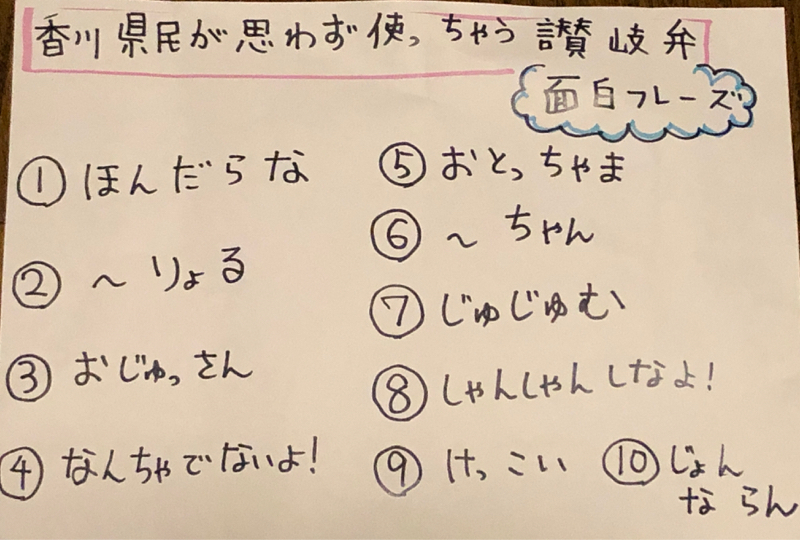 香川県民が思わず使っちゃう讃岐弁
面白フレーズ
① ほんだらな
② ～りょる
③ おじゅっさん
④ なんちゃでないよ!
⑤ おとっちゃま
⑥ ～ちゃん
⑦ じゅじゅむ
⑧ しゃんしゃんしなよ!
⑨ けっこい
⑩ じょん
ならん